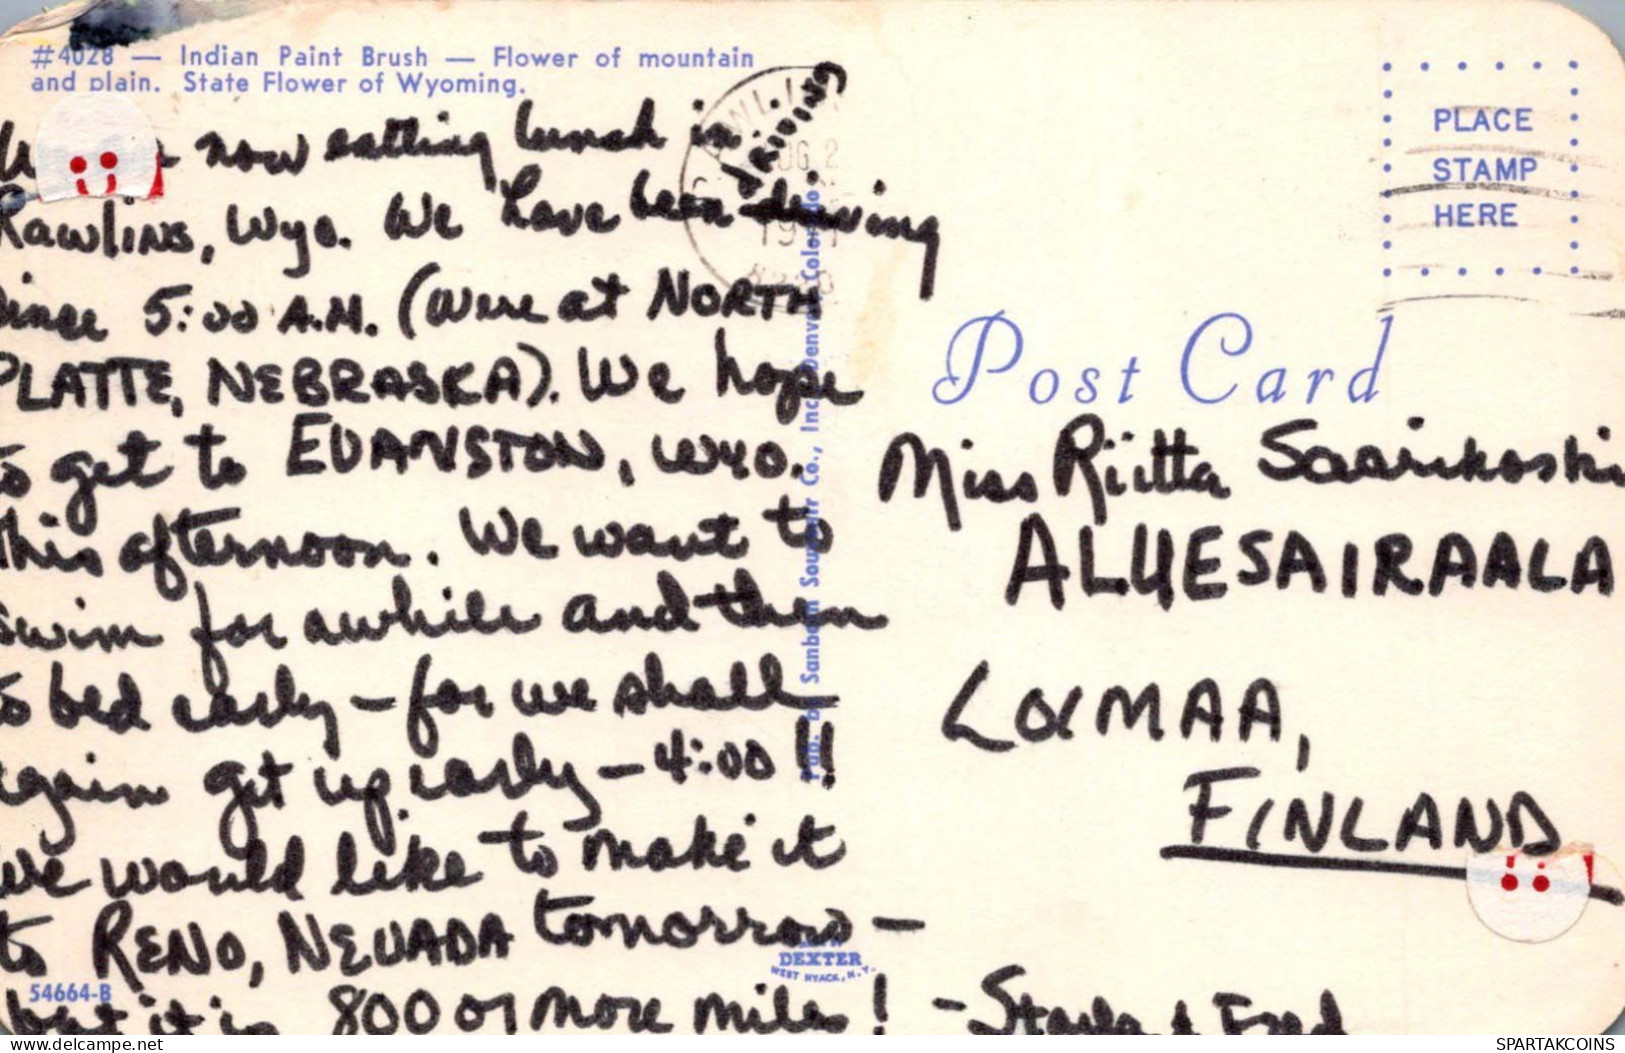 #4028 — Indian Paint Brush — Flower of mountain
and plain. State Flower of Wyoming.
now eatting lunch in
Rawlins, Wyo. We have been driving
DRIVING
since 5:00 A.M. (Were at NORTH
PLATTE, NEBRASKA). We hope
to get to EVANSTON, WYO.
this afternoon. We want to
swim for awhile and then
to bed early – for we shall
again get up early – 4:00!!
We would like to make it
to RENO, NEVADA tomorrow –
but it is 800 or more miles! – Starla & Fred
54664-B
Pub. by Sanborn Souvenir Co., Inc., Denver, Colorado
DEXTER
WEST NYACK, N.Y.
PLACE
STAMP
HERE
Post Card
Miss Riitta Saarikoski
ALUESAIRAALA
LOIMAA,
FINLAND
SPARTAKCOINS
delcampe.net